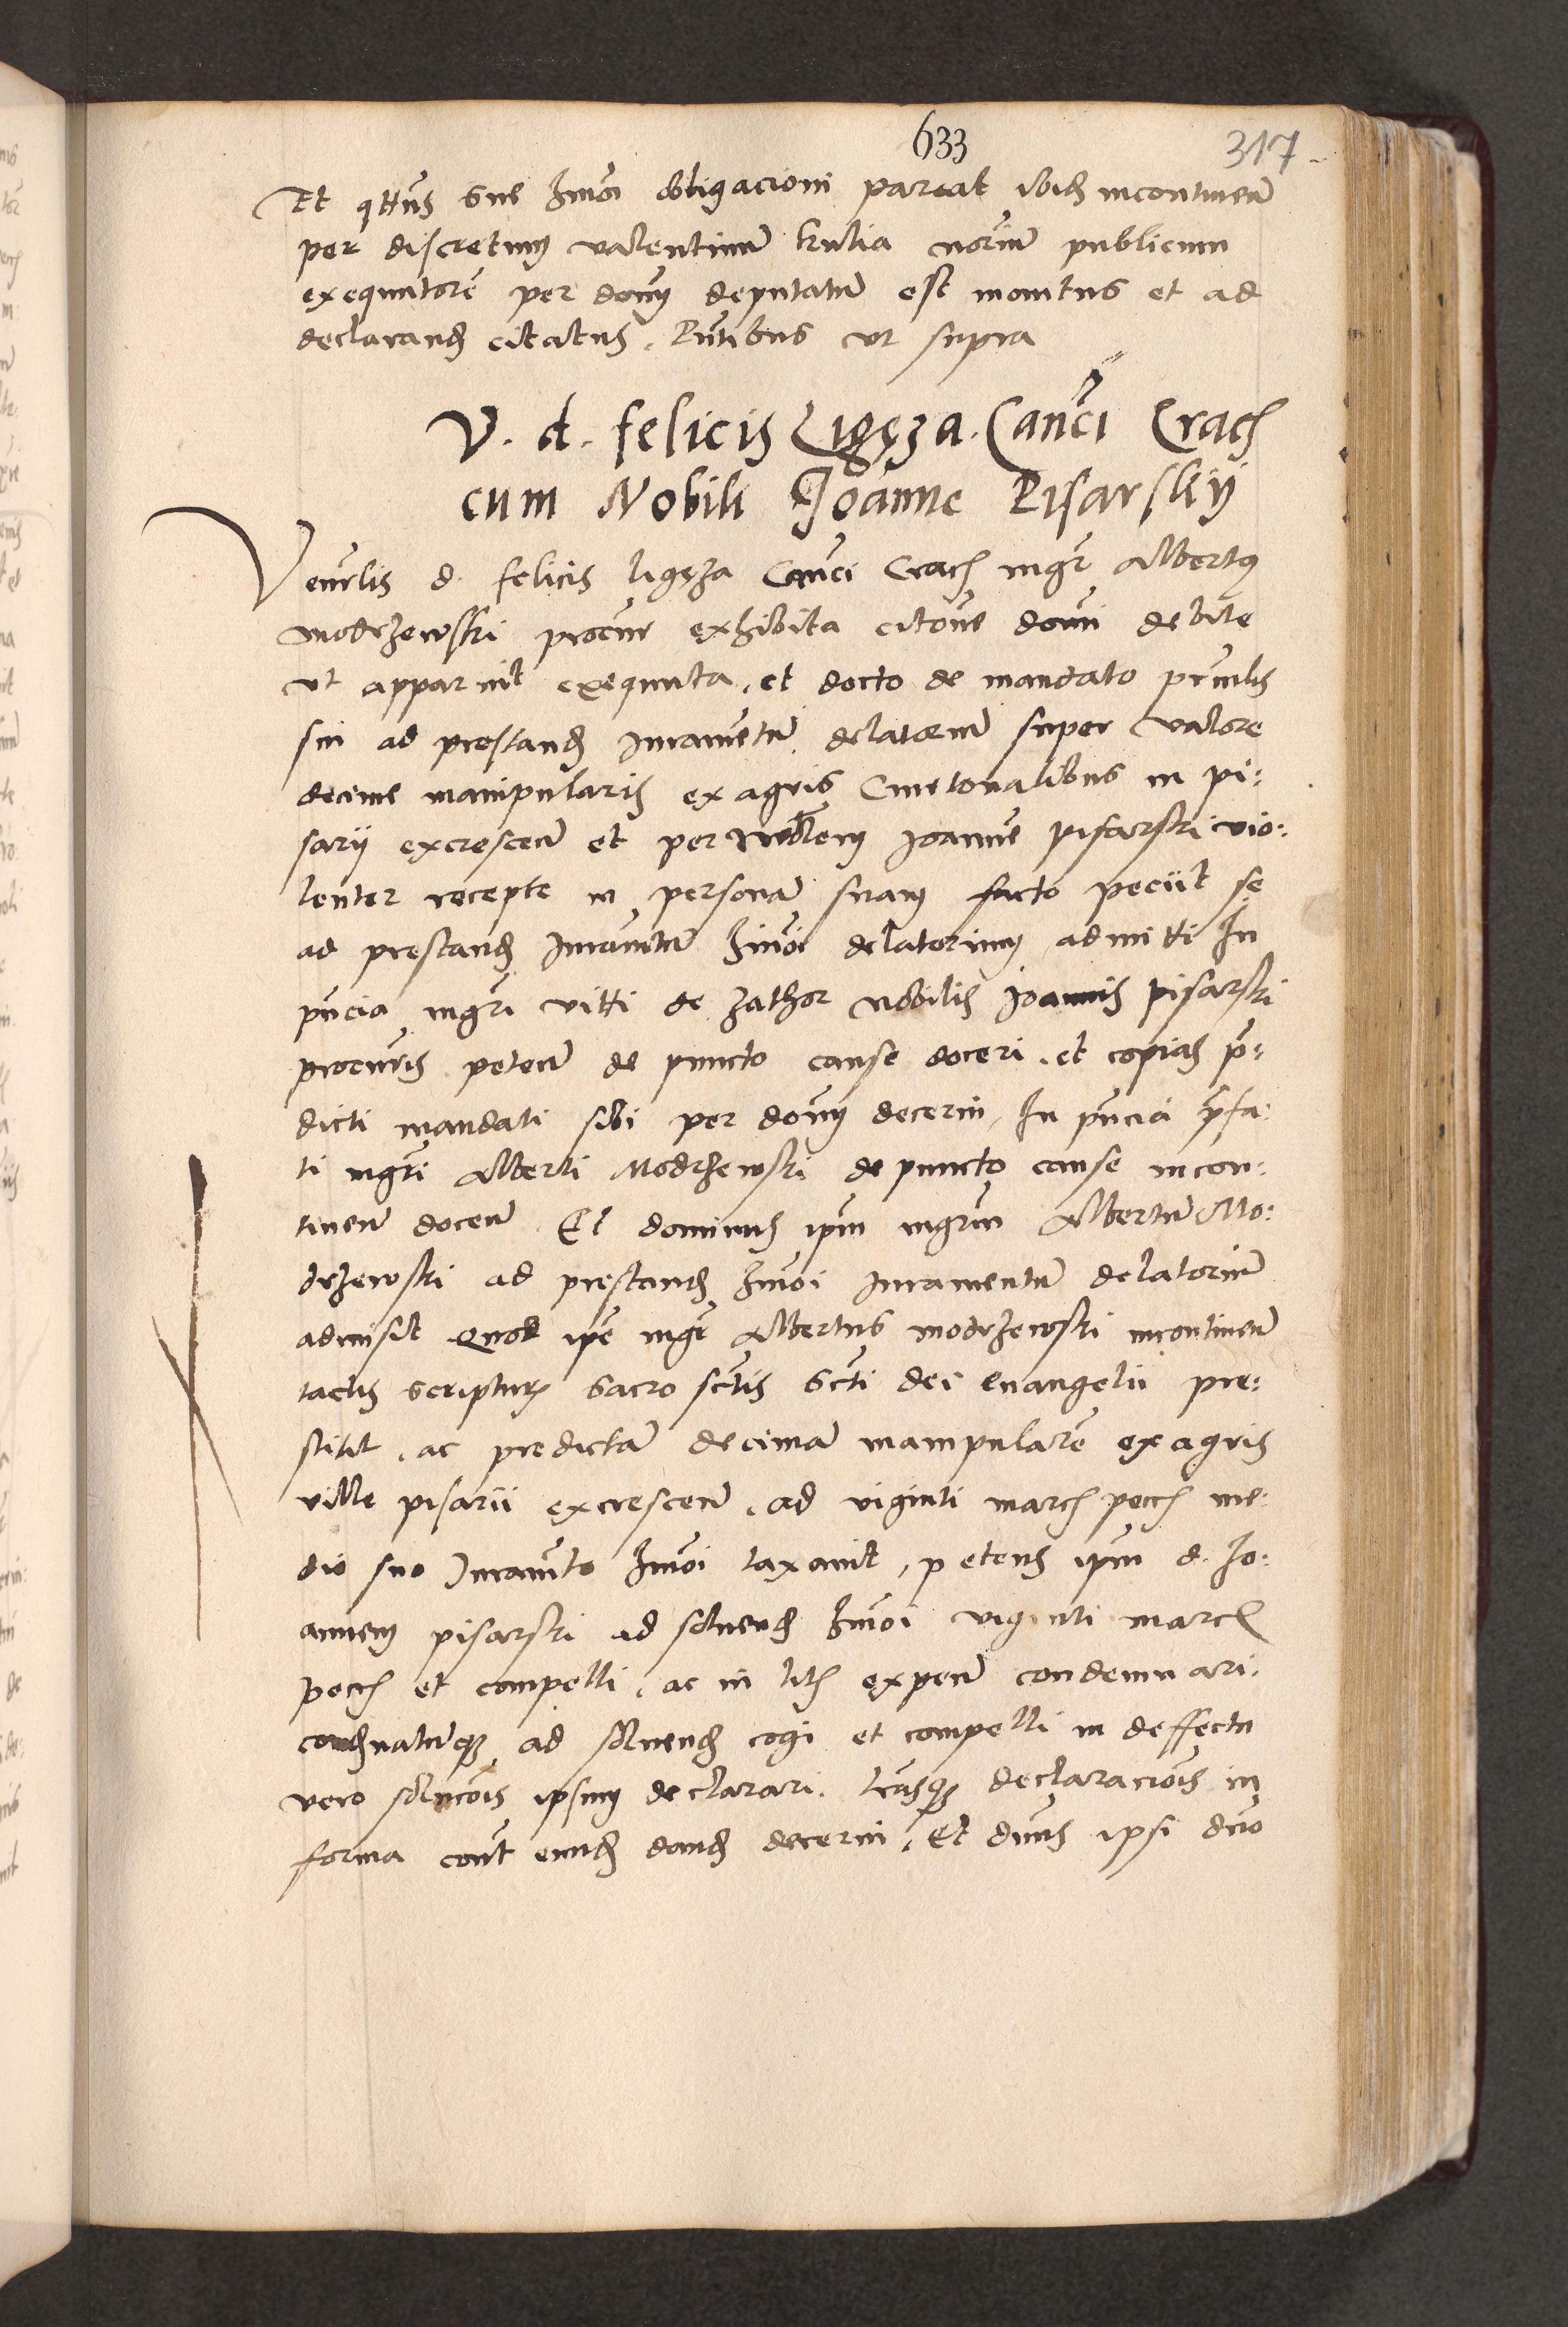 633
317
Et q̄tt̄s sue hm̄oi obligacioni pareat ibid̄ incontinen̄
per discretum valentinum kulia nor̄ium publicum
exequutorē per don̄m deputatum est monitus et ad
declarand̄ citatus. Pn̄tibus vt supra
V. d. felicis Ligęza. Canci Crac̄
cum Nobili Joanne Pisarskÿ
Venr̄lis d. felicis ligęza Canci Crac̄ mgr̄ Albertus
modrzewski procur̄ exhibita citōne don̄i debite
vt apparuit exequuta, et docto de mandato prīnlis
sui ad prestand̄ Iuramentum delatorium super valore
decime manipularis ex agris Cmetonalibus in pi:
sarÿ excrescen̄ et per nobl̄em Joannē pisarski vio:
lenter recepte in personam suam facto peciit se
ad prestand̄ Iuramentum hm̄oi delatorium admitti In
pn̄cia mgr̄i vitti de zathor nobilis Joannis pisarski
procur̄is peten̄ de puncto cause doceri. et copias p̄:
dicti mandati sibi per don̄m decerni, In pn̄cia p̄fa:
ti mgr̄i Alberti Modrzewski de puncto cause incon:
tinen̄ docen̄. Et dominus ip̄m mgr̄um Albertum Mo:
drzewski ad prestand̄ hm̄oi Iuramentum delatorium
admisit Quod ip̄e mgr̄ Albertus modrzewski incontinen̄
tactis scripturis sacro sctīs sctī dei euangelii pre:
stitit, ac predictam decimam manipularē ex agris
ville pisarii excrescen̄, ad viginti marc̄ pecc̄ me:
dio suo Iuramento hm̄oi taxauit, petens ip̄m d. Jo:
annem pisarski ad soluend̄ hm̄oi viginti marc̄
pecc̄ et compelli, ac in lit̄ expen̄ condemnari.
cond̄natumq; ad soluend̄ cogi et compelli in deffectu
vero soluc̄ois ipsum declarari. Lr̄asq; declaraciōis in
forma con̄t eund̄ dand̄ decerni. Et dn̄us ipsi duo